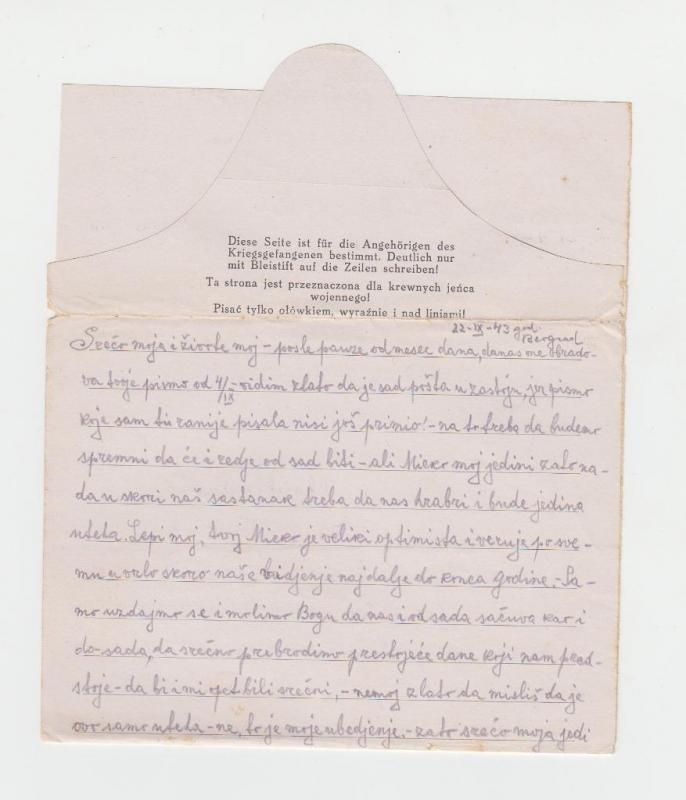 Diese Seite ist für die Angehörigen des
Kriegsgefangenen bestimmt. Deutlich nur
mit Bleistift auf die Zeilen schreiben!
Ta strona jest przeznaczona dla krewnych jeńca
wojennego!
Pisać tylko ołówkiem, wyraźnie i nad liniami!
22-IX-43 god.
Beograd
Srećo moja i živote moj - posle pauze od mesec dana, danas me obrado-
va tvoje pismo od 4/IX - vidim zlato da je sad pošta u zastoju, jer pismo
koje sam ti ranije pisala nisi još primio! - na to treba da budemo
spremni da će i redje od sad biti - ali moj jedini zato na-
da u skori naš sastanak treba da nas hrabri i bude jedina
uteta. Lepi moj, tvoj je veliki optimista i veruje po sve-
mu u vrlo skoro naše vidjenje najdalje do konca godine. - Sa-
mo uzdajmo se i molimo Bogu da nas i od sada sačuva kao i
do-sada, da srećno prebrodimo dane koji nam pred-
stoje - da bi i mi opet bili srećni, - nemoj zlato da misliš da je
ovo samo uteta - ne, to je moje ubedjenje. - zato srećo moja jedi